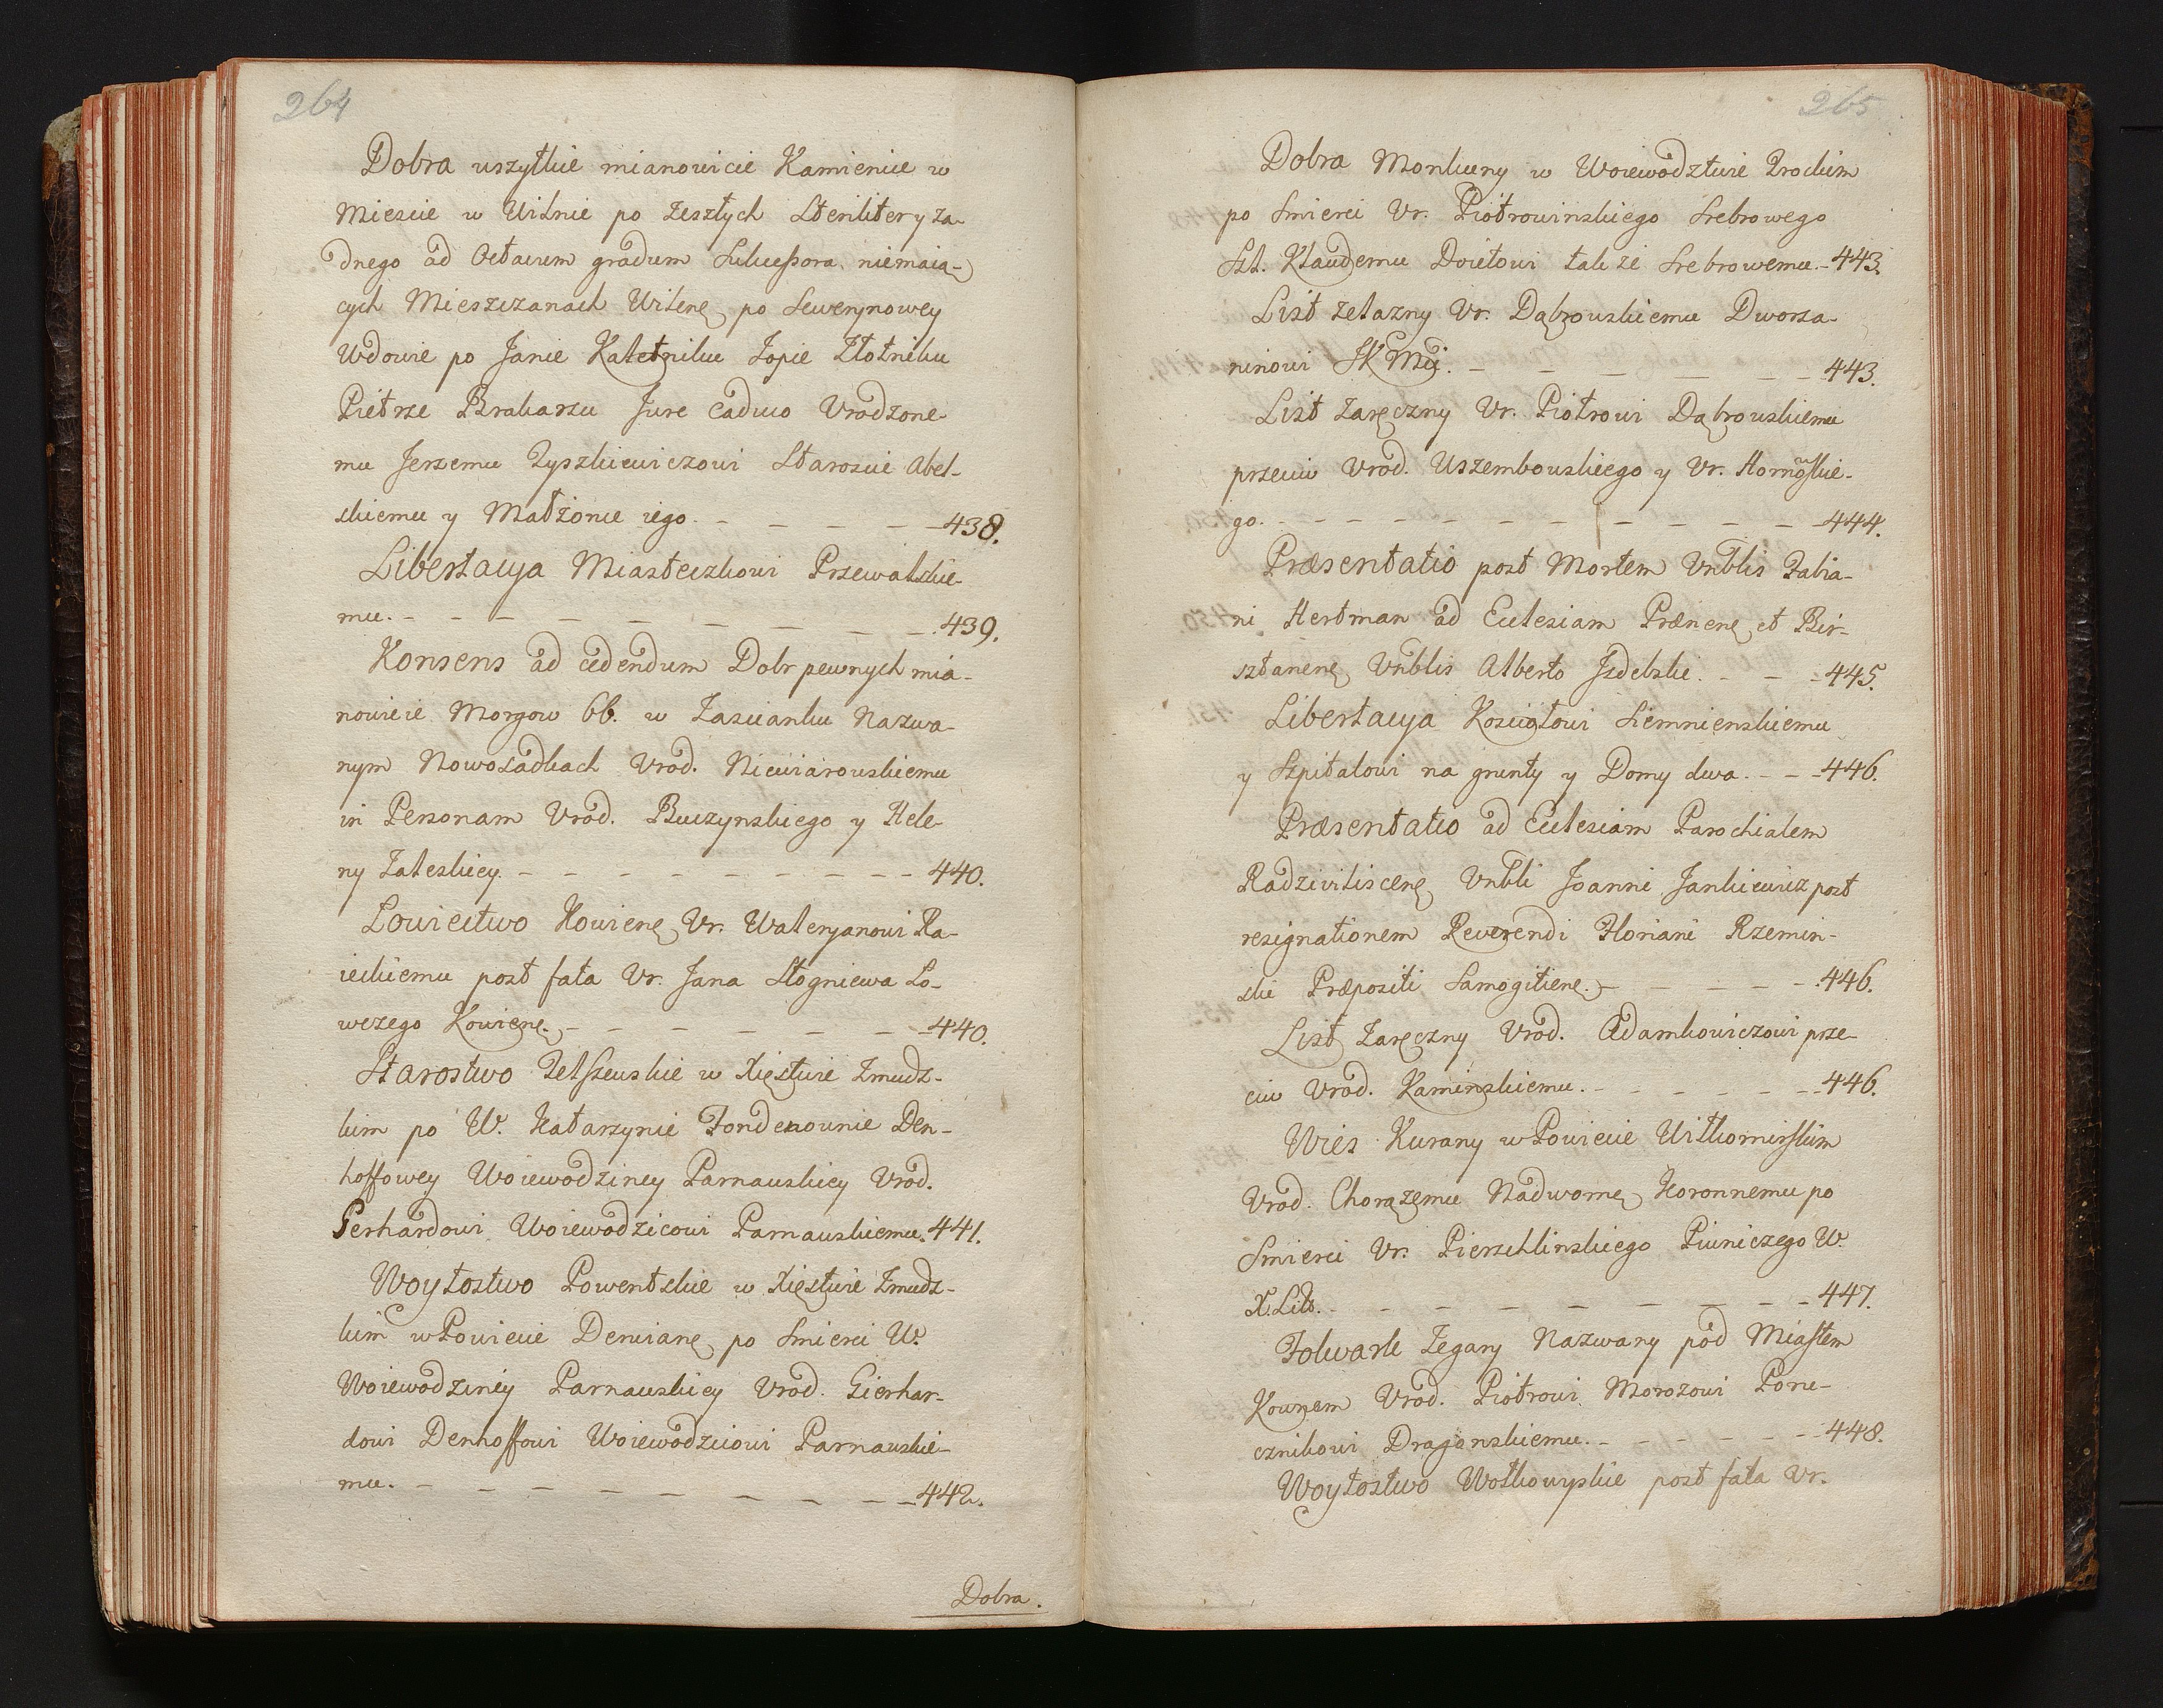 264
Dobra wszytkie mianowicie Kamienice w
Miescie w Wilnie po zeszłych Steriliter y ża-
dnego ad Octavum gradum Sukcessora niemaią-
cych Mieszczanach Wilenę po Sewerynowey
Wdowie po Janie Kaletniku Zopie Złotniku
Pietrze Brakarzu Jure Caduco Urodzone-
mu Jerzemu Tyszkiewiczowi Staroscie Abel-
skiemu y Małżonce iego. 438.
Libertacya Miasteczkowi Przewalskie-
mu. 439.
Konsens ad cedendum Dobr pewnych mia-
nowicie Morgow 66. w Zascianku Nazwa-
nym Nowosadkach Urod. Niewiarowskiemu
in Personam Urod. Buczynskiego y Hele-
ny Zaleskiey. 440.
Lowiectwo Kowienę Ur. Waleryanowi Ra-
ieckiemu post fata Ur. Jana Stogniewa Lo-
wczego Kowienę. 440.
Starostwo Telszewskie w Xięstwie Zmudz-
kim po W. Katarzynie Fondenownie Den-
hoffowey Woiewodziney Parnauskiey Urod.
Gerhardowi Woiewodzicowi Parnauskiemu. 441.
Woytostwo Powentskie w Xięstwie Zmudz-
kim w Powiecie Derwianę po Smierci W.
Woiewodziney Parnauskiey Urod. Gierhar-
dowi Denhoffowi Woiewodzicowi Parnauskie-
mu. 442.
Dobra.
265
Dobra Monkuny w Woiewodztwie Trockim
po Smierci Ur. Piotrowinskiego Srebrowego
Szl. Klaudemu Doietowi także Srebrowemu. 443.
List żelazny Ur. Dąbrowskiemu Dworza-
ninowi JK Mci. 443.
List zaręczny Ur. Piotrowi Dąbrowskiemu
przeciw Urod. Uszembowskiego y Ur. Hornowskie-
go. 444.
Præsentatio post Mortem Vnblis Fabia-
ni Hertman ad Eclesiam Prænenę et Bir-
sztanenę Vnblis Alberto Jzdebski. 445.
Libertacya Kosciołowi Siemnienskiemu
y Szpitalowi na grunty y Domy dwa. 446.
Præsentatio ad Eclesiam Parochialem
Radziviliscenę Vnbli Joanni Jankiewicz post
resignationem Reverendi Floriani Rzemin-
ski Præpositi Samogitienę. 446.
List Zaręczny Urod. Adamkowiczowi prze-
ciw Urod. Kaminskiemu. 446.
Wies Kurany w Powiecie Wiłkomirskim
Urod. Chorążemu Nadwornę Koronnemu po
Smierci Ur. Pierzchlinskiego Piwniczego W.
X. Litt. 447.
Folwark Zegary Nazwany pod Miastem
Kownem Urod. Piotrowi Morozowi Poru-
cznikowi Dragonskiemu. 448.
Woytostwo Wołkowyskie post fata Ur.